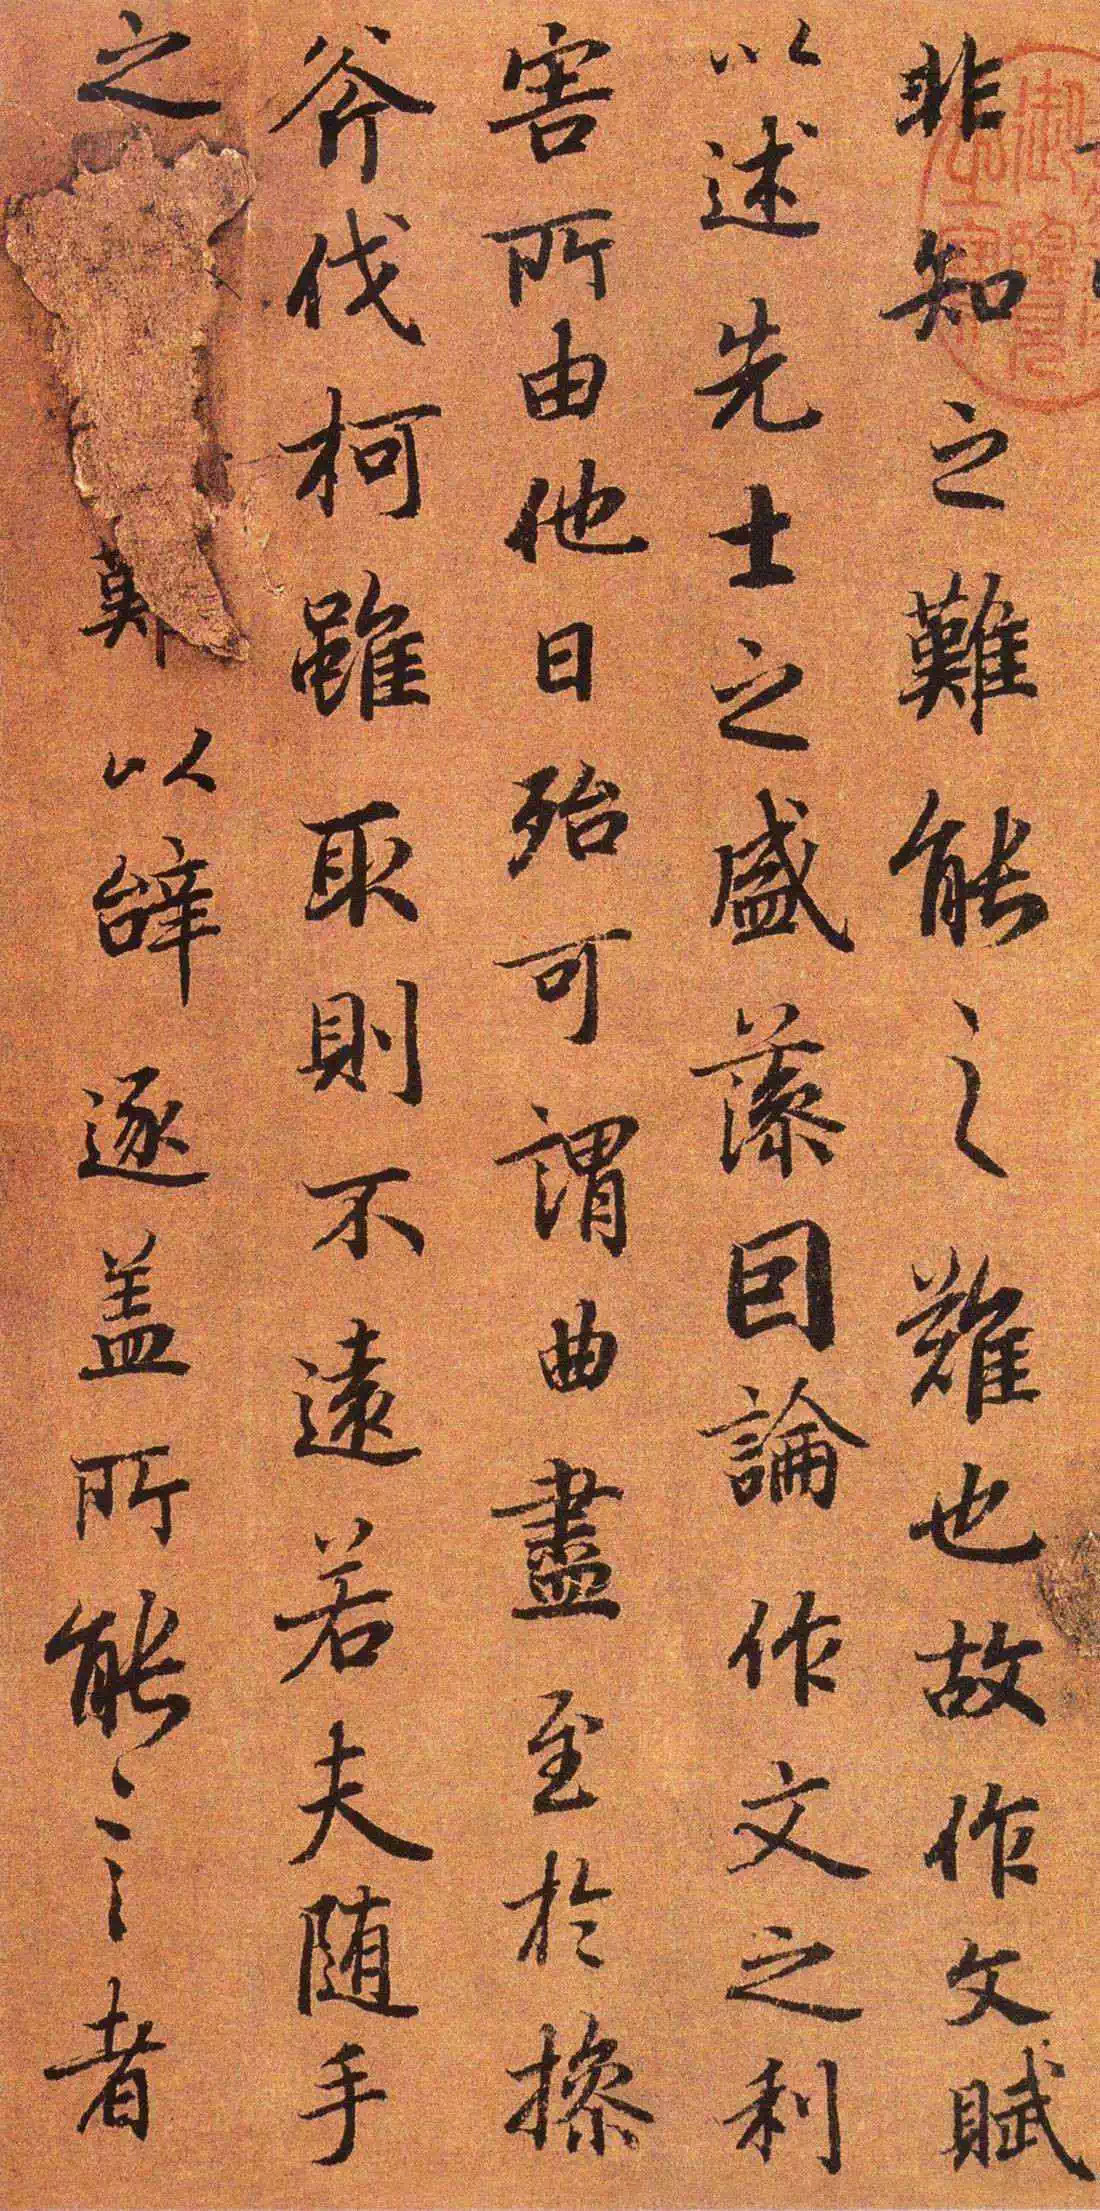 非知之難能之難也故作文賦
以述先士之盛藻因論作文之利
害所由他日殆可謂曲盡至於操
斧伐柯雖取則不遠若夫随手
之難以辞逐盖所能言者